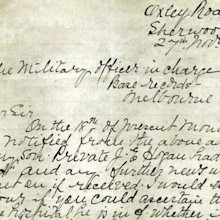 Oxley Road
Sherwood
27th Nov
The Military Officer in charge
Base records
Melbourne
Dear Sir
On the of present Month
notified from the above a
my son Private J. had
and any further news
if received. I would
if you could ascertain t
hospital he is in & whether